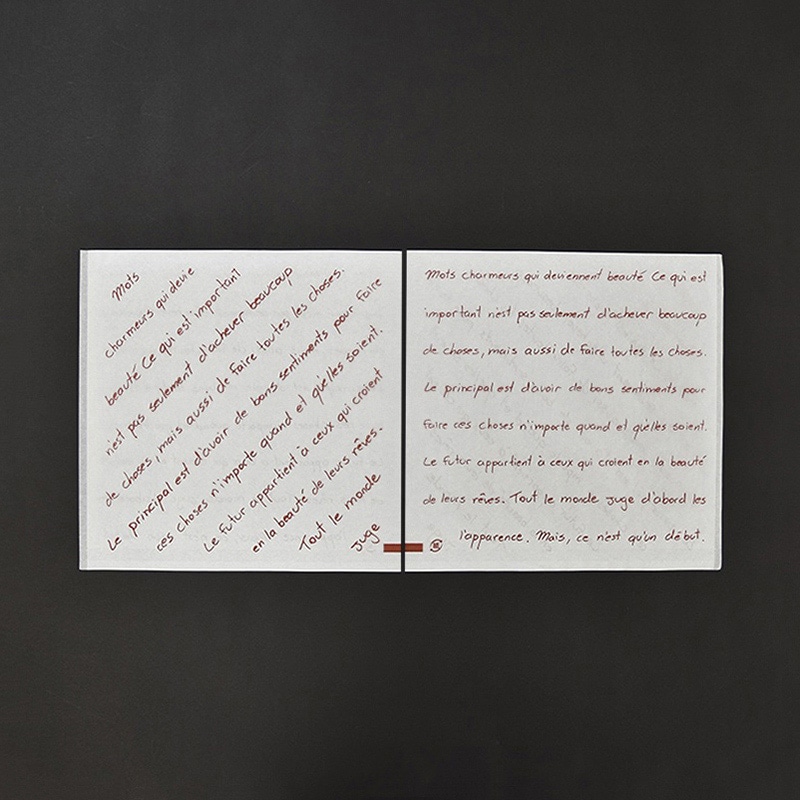 Mots
charmeurs qui devie
beauté Ce qui est important
n'est pas seulement d'achever beaucoup
de choses, mais aussi de faire toutes les choses.
Le principal est d'avoir de bons sentiments pour faire
ces choses n'importe quand et qu'elles soient.
Le futur appartient à ceux qui croient
en la beauté de leurs rêves.
Tout le monde
juge
Mots charmeurs qui deviennent beauté Ce qui est
important n'est pas seulement d'achever beaucoup
de choses, mais aussi de faire toutes les choses.
Le principal est d'avoir de bons sentiments pour
faire ces choses n'importe quand et qu'elles soient.
Le futur appartient à ceux qui croient en la beauté
de leurs rêves. Tout le monde juge d'abord les
l'apparence. Mais, ce n'est qu'un début.